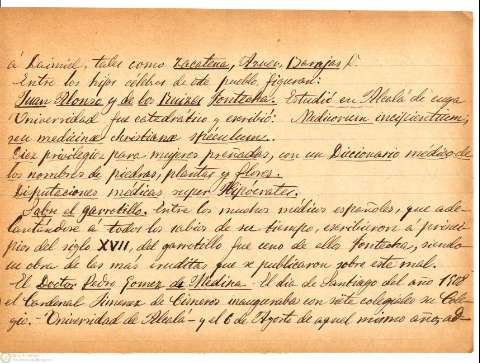 á Daimiel, tales como Zacatena, Azuer, Barajas &.
Entre los hijos célebres de este pueblo, figuran:
Juan Alonso y de los Ruizes Fontecha. Estudió en Alcalá de cuya
Universidad fue catedrático y escribió: Medicorum incipientium,
seu medicinæ christianæ speculum.
Diez privilegios para mujeres preñadas, con un Diccionario médico de
los nombres de piedras, plantas y flores.
Disputaciones médicas super Hipocrates.
Sobre el garrotillo. Entre los muchos médicos españoles, que ade-
lantándose a todos los sabios de su tiempo, escribieron a princi-
pios del siglo XVII, del garrotillo fue uno de ellos Fontecha, siendo
su obra de las más eruditas, que se publicaron sobre este mal.
El Doctor Pedro Gomez de Medina. El día de Santiago del año 1508
el Cardenal Jimenez de Cisneros inauguraba con siete colegiales su Cole-
gio. - Universidad de Alcalá - y el 6 de Agosto de aquel mismo año, ad-